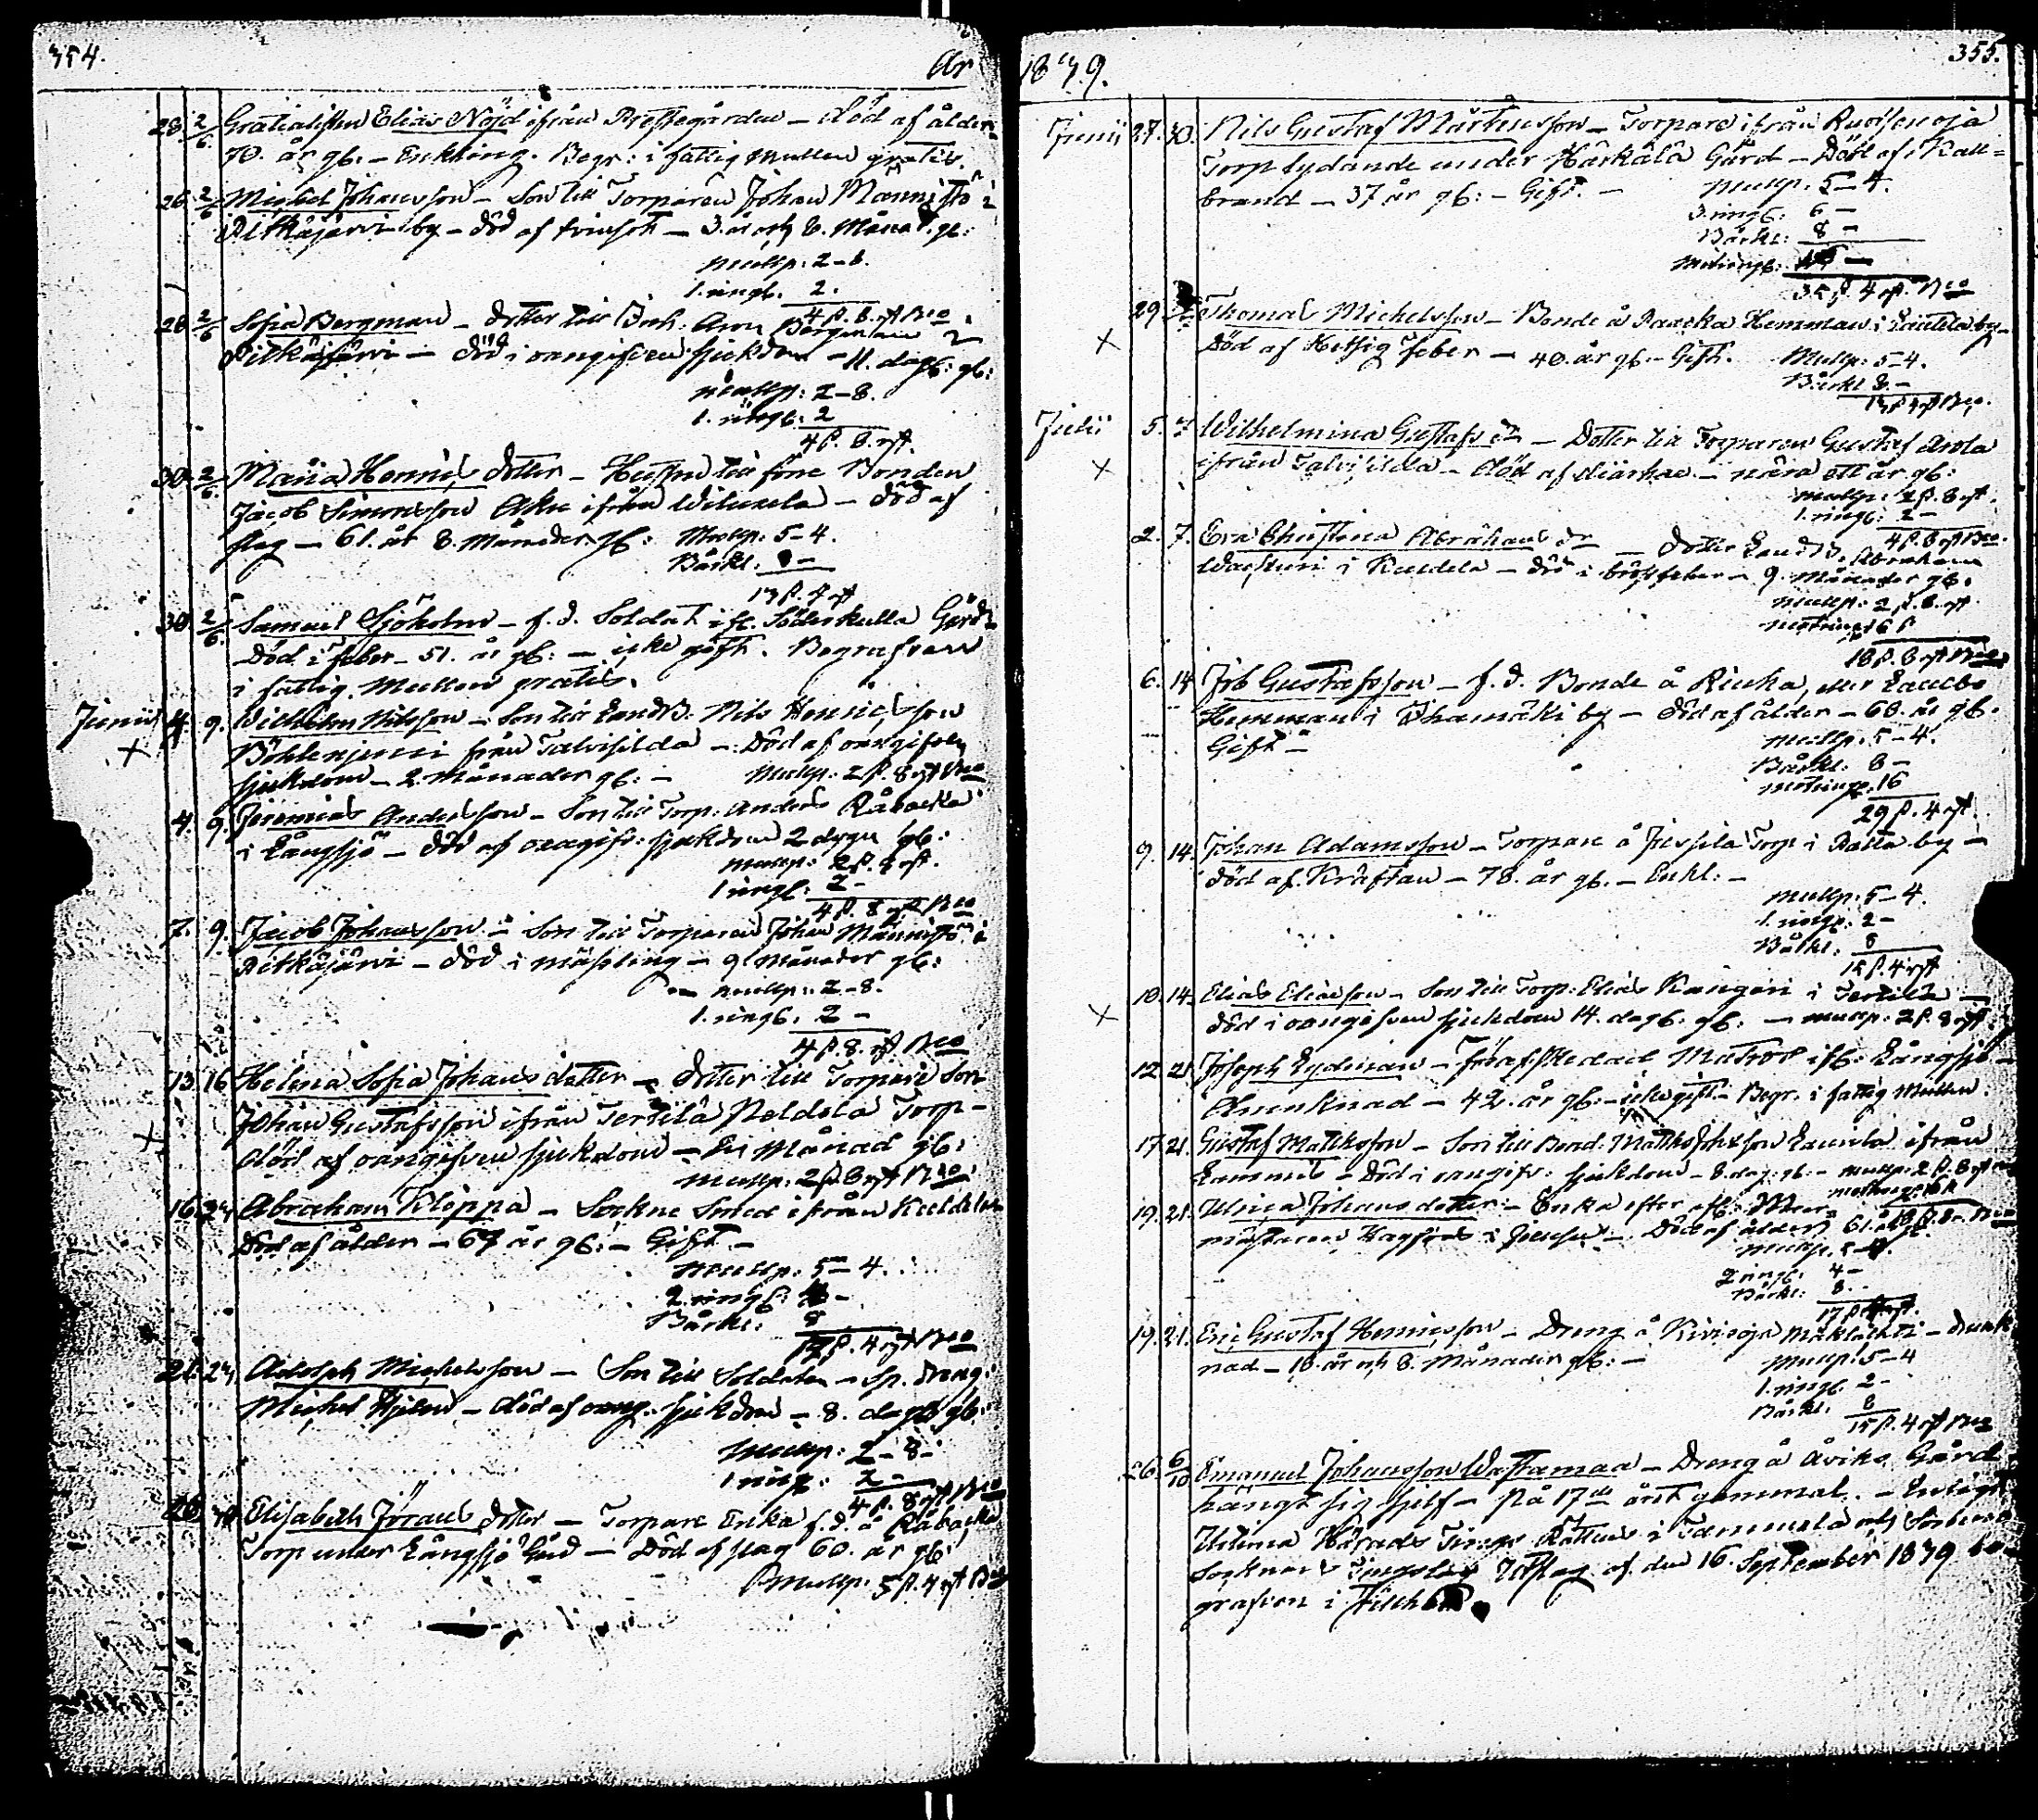 354. År
28. 2/6 Gratialisten Elias Nöjd ifrån Prestegården – Död af ålder
70. år gl: – Enkling. Begr: i fattig Mullen gratis.
26. 2/6 Michel Johansson – Son till Torparen Johan Mannistö i
Pitkäjärvi by – död af – 3. år och 8. Månad. gl:
Mullp: 2–8.
1. ringl. 2.
4 ß. 8. rst Bco
28 2/6 Sofia Bergman – dotter till Inh: Aron Bergman i
Pitkäjärvi – död i oangifven sjukdom – 11. dag: gl:
Mullp: 2–8.
1. ringl: 2
4 ß. 8. rst.
30. 2/6. Maria Henrics dotter – Hustru till före Bonden
Jacob Simonsson ifrån – död af
slag – 61. år 8. Månader gl: Mullp: 5–4.
Bårkl: 8 –
13 ß. 4 rst
30. 2/6. Samuel Sjöholm – f. d. Soldat ifr. Söderkulla Gård –
Död i feber – 51. år gl: – icke gift. Begrafven
i fattig Mullen gratis.
Junii 4. 9. Wilhelm Nilsson – Son till Landb. Nils Henricsson
från Talvisilda – Död af oangifven
× sjukdom – 2. månader gl: – Mullp: 2 ß. 8 rst Bco
4. 9. Jeremias Andersson – Son till Torp. Anders Råbacka
i Långsjö – död af oangifv: sjukdom 2 dygn gl:
Mullp: 2 ß. 8 rst.
1 ringl: 2 –
4 ß. 8 rst Bco
7. 9. Jacob Johansson – Son till Torparen Johan Männistö i
Pitkäjärvi – död i mässling – 9 Månader gl:
Mullp: 2–8.
1. ringl: 2 –
4 ß. 8. rst. Bco
13. 16 Helena Sofia Johans dotter – dotter till Torpare Son
Johan Gustafsson ifrån Terttilä Peldola Torp –
× död af oangifven sjukdom – En Månad gl:
Mullp: 2 ß 8 rst Bco
16. 24 Abraham Klöppa – Sockne Smed ifrån
Död af ålder – 67 år gl: – Gift –
Mullp: 5–4.
2. ringl: 4 –
Bårkl: 8
17 ß. 4 rst Bco
21. 24 Adolph Michelsson – Son till Soldaten – Sp. dreng.
Michel – död af oang. sjukdom – 8. dagar gl:
Mullp: 2–8–
1 ringl: 2 –
4 ß. 8 rst Bco
26. Elisabeth Jörans dotter – Torpare Enka f. d. å Råbacka
Torp under Långsjö Gård – Död af slag 60. år gl:
Mullp: 5 ß. 4 rst Bco
1839. 355.
Junii 27. 30. Nils Gustaf Mårtensson – Torpare ifrån Ruotsenoja
Torp lydande under Härkälä Gård – Död af Kall=
brand – 37 år gl: – Gift. – Mullp: 5–4.
3. ringl: 6 –
Bårkl: 8 –
35 ß. 4 rst. Bco
29 Thomas Michelsson – Bonde å Hemman i by –
× Död af Hetsig feber – 40. år gl. – Gift. Mullp: 5–4.
Bårkl 8. –
13 ß 4 rst Bco.
Julii 5. 7 Wilhelmina Gustafs dr – Dotter till Torparen Gustaf
× ifrån Talvisilda – död af diarhae – nära ett år gl:
Mullp: 2 ß. 8 rst.
1. ringl: 2 –
4 ß. 8 rst Bco.
2. 7. Eva Christina Abrahams dr – dotter Landb. Abraham
i – död i bröstfeber – 9. Månader gl.
Mullp: 2 ß. 8. rst.
16 ß
18 ß. 8 rst Bco
6. 14 Job Gustafsson – f. d. Bonde å eller
Hemman i by – död af ålder – 60. år gl.
Gift – Mullp: 5–4.
Bårkl: 8 –
16
29 ß. 4 rst.
9. 14. Johan Adamsson – Torpare å Torp i by –
död af Kräftan – 78. år gl. – Enkl: –
Mullp: 5–4.
1. ringl: 2 –
Bårkl: 8
15 ß. 4 rst
10. 14. Elias Eliasson – Son till Torp: Elias i Terttilä –
× död i oangifven sjukdom 14. dag. gl: – Mullp: 2 ß. 8 rst
12. 21. Joseph Lydman – Afskedad Matros ifr: Långsjö –
Drunknad – 42. år gl. – icke gift – Begr. i fattig Mullen.
17. 21. Gustaf Mattsson – Son till Bond. ifrån
– död i oangifv: sjukdom – 8. dag: gl: – Mullp: 2 ß. 8 rst
19. 21. Ulrica Johans dotter – Enka efter
mästaren i – Död af ålder 61. år gl.
Mullp. 5–4.
2 ringl: 4 –
Bårkl: 8.
17 ß 4 rst.
19. 21. Eric Gustaf Henricsson – Dreng å Kivioja – drunk
nad – 18. år och 8. Månader gl: – Mullp: 5–4
1. ringl. 2 –
Bårkl: 8
15 ß. 4 rst Bco
26. 6/10 Emanuel Johansson Wastamaa – Dreng å Åviks Gård –
hängt sig sjelf – På 17de året gammal. – Enligt
Härads Tings Rättens i Tammela och
Socknars Tingslag Utslag af den 16. September 1839 be–
grafven i